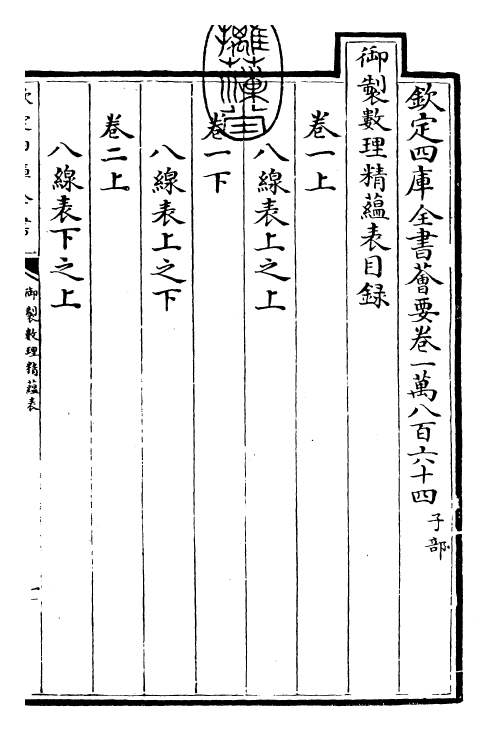 欽定四庫全書薈要卷一萬八百六十四 子部
御製數理精蘊表目録
卷一上
八線表上之上
卷一下
八線表上之下
卷二上
八線表下之上
御製數理精蘊表